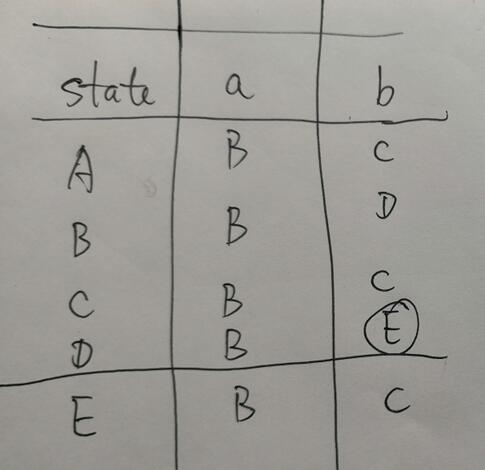 state a b
A B C
B B D
C B C
D B E
E B C